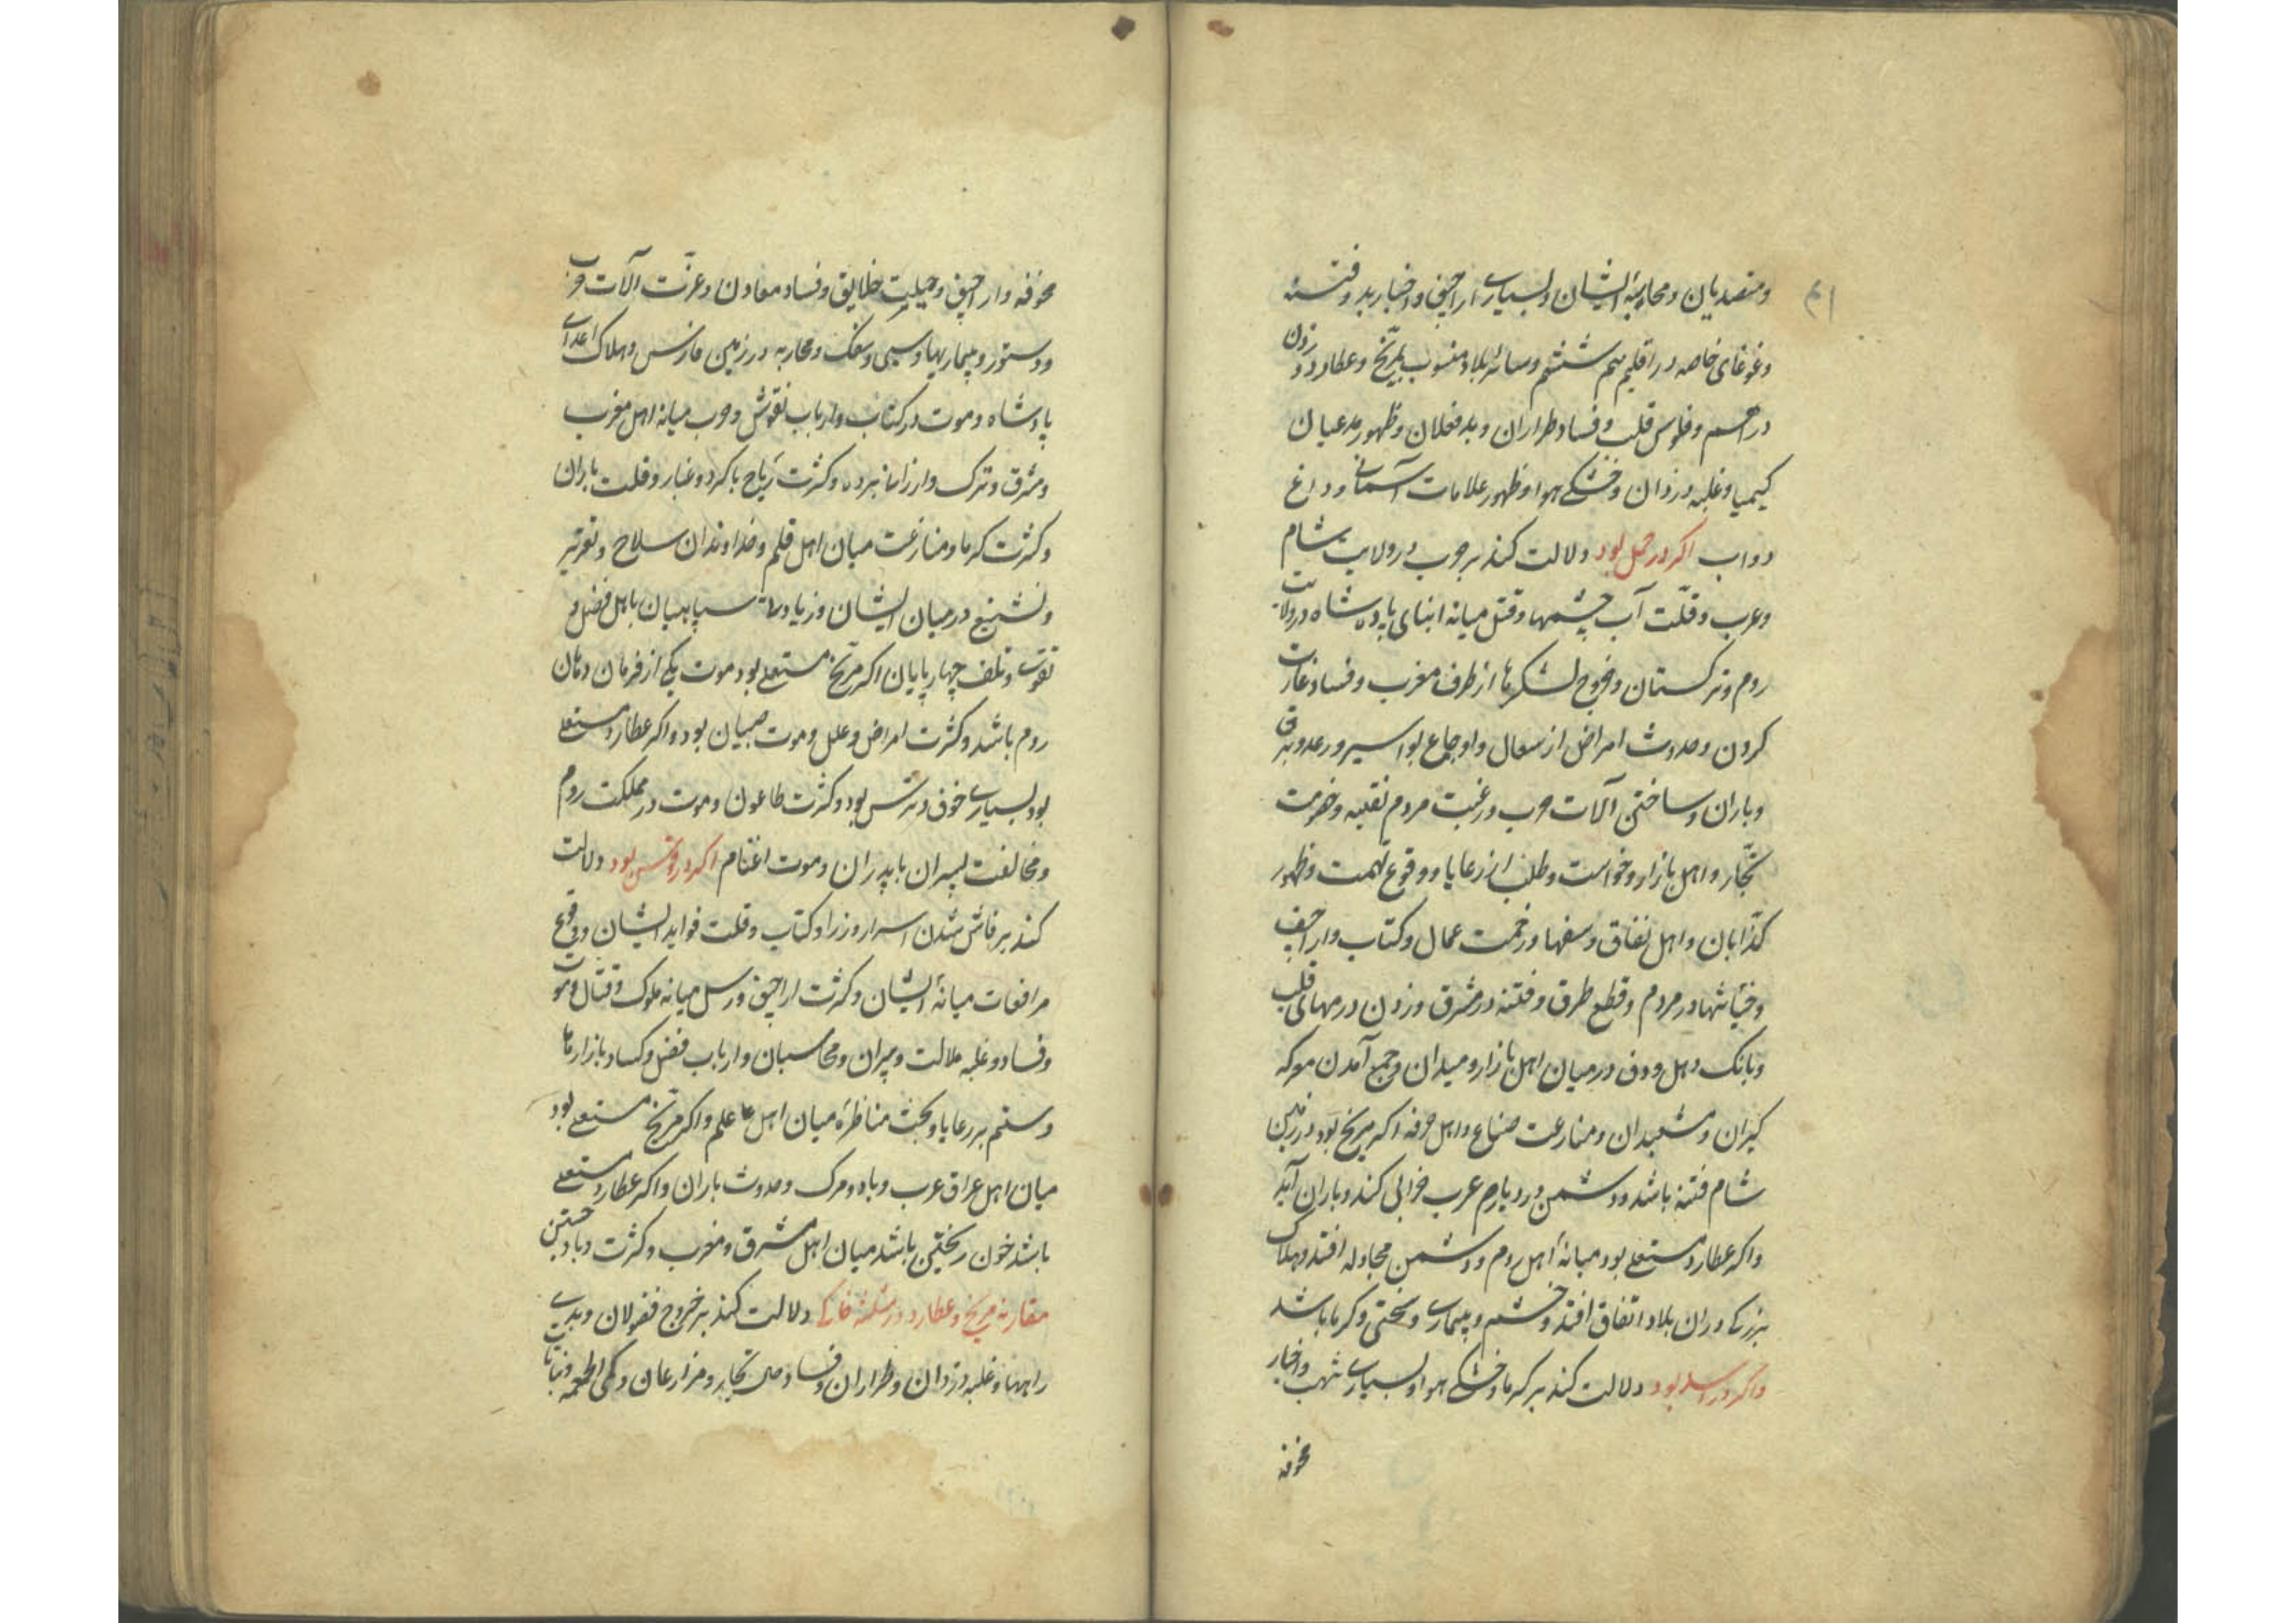 ومتصدیان ومحاسبهٔ ایشان وبسیاری اراجیف واخبار بد وفتنه
وغوغای خاصه در اقلیم سیم ششم وسائر بلاد منسوب بمریخ وعطارد وزدن
دراهم وفلوس قلب وفساد طراران وبدفعلان وظهور مدعیان
کیمیا وغلبه دزدان وخشکی هوا وظهور علامات آسمانی وداغ
دواب اکر در حمل بود دلالت کند بر حرب در ولایت شام
وعرب وقلّت آب چشمها وقتل میانه ابنای پادشاه در ولایت
روم وترکستان وخروج لشکرها از طرف مغرب وفساد وغارت
کردن وحدوث امراض از سعال واوجاع بواسیر ورعد وبرق
وباران وساختن آلات حرب ورغبت مردم بقلبه وخصومت
تجّار واهل بازار وخواست وطلب از رعایا ووقوع تهمت وظهور
کذّابان واهل نفاق وسفها وزحمت عمال وکتاب واراجیف
وخیانتها در مردم وقطع طرق وفتنه در مشرق وزدن درمهای قلب
وبانک دهل ودف در میان اهل بازار ومیدان وجمع آمدن معرکه
کیران ومشعبدان ومنازعت صناع واهل حرفه اکر مریخ بود در زمین
شام فتنه باشد ودشمن در دیار عرب خرابی کند وباران آید
واکر عطارد مستعلی بود میانهٔ اهل روم ودشمن مجادله افتد وهلاک
بزرکی دران بلاد اتفاق افتد وخشم وبیماری وسختی وکرما باشد
واکر در اسد بود دلالت کند بر کرما وخشکی هوا وبسیاری شهب واخبار
مخوفه
مخوفه واراجیف وحیلت خلایق وفساد معادن وعزّت آلات حرب
ودستور وبیماریها وسبی وسفک ومحاربه در زمین فارس وهلاک اعدای
پادشاه وموت در کتاب وارباب نقوش وحرب میانه اهل مغرب
ومشرق وترک وارزانی برده وکثرت ریاح با کرد وغبار وقلت باران
وکثرت کرما ومنازعت میان اهل قلم وخداوندان سلاح وتعزیر
وتشنیع در میان ایشان وزیادتی سپاهیان با اهل فضل و
تقوی وتلف چهارپایان اکر مریخ مستعلی بود موت یکی از فرمان دهان
روم باشد وکثرت امراض وعلل وموت صبیان بود واکر عطارد مستعلی
بود بسیاری خوف وترس بود وکثرت طاعون وموت در مملکت روم
ومخالفت پسران با پدران وموت اغنام اکر در قوس بود دلالت
کند بر فاش شدن اسرار وزرا وکتاب وقلت فواید ایشان ووقوع
مرافعات میانهٔ ایشان وکثرت اراجیف ورسل میانه ملوک وقتال وموت
وفساد وغلبه ملالت دبیران ومحاسبان وارباب فضل وکساد بازارها
وستم بر رعایا وبحث مناظره میان اهل علم واکر مریخ مستعلی بود
میان اهل عراق عرب وباد ومرک وحدوث باران واکر عطارد مستعلی
باشد خون ریختن باشد میان اهل مشرق ومغرب وکثرت وبا وجستن
مقارنه مریخ وعطارد در مثلثه خاکی دلالت کند بر خروج فضولان وبدی
راهها وغلبه دزدان وطراران وفساد تجار ومزارعان وکمی اطعمه ونباتات